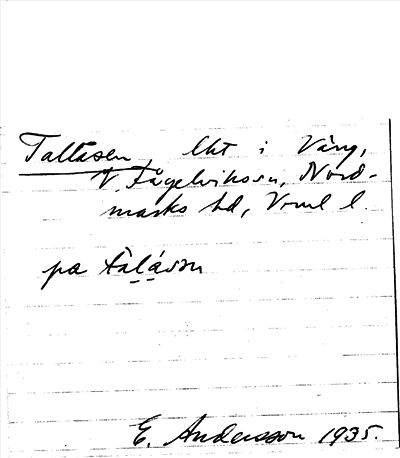 Tallåsen, lht i Väng,
V. Fågelviks sn, Nord-
marks hd, Vrml l.
på tàlåsən
E. Andersson 1935.